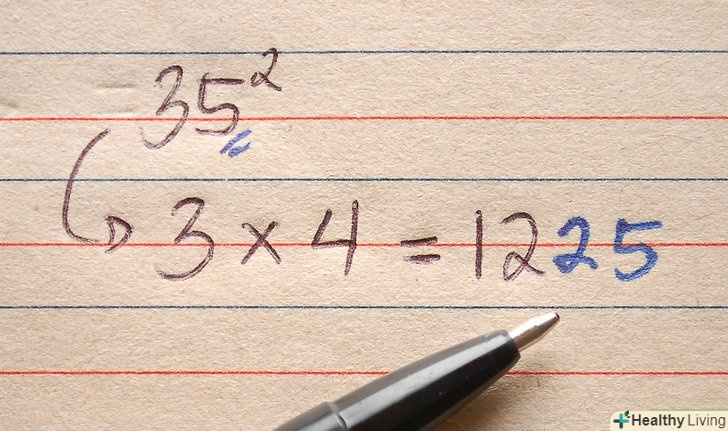 35²
3 × 4 = 1225
Healthy Living